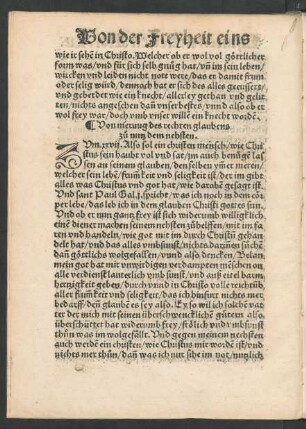 Von der Freyheit eins
wie ir sehẽ in Christo. Welcher ob er wol vol göttlicher
form was / vnd für sich selb gnůg hat / vñ im sein leben /
wircken vnd leiden nicht nott were / das er damit frum
oder selig würd / dennocht hat er sich des alles geeussert /
vnd geberdet wie ein knecht / allerley gethan vnd gelit
ten / nichts angesehen dañ vnser bestes / vnnd also ob er
wol frey war / doch vmb vnser willẽ ein knecht wordẽ.
zů nutz dem nehsten.
Zum. xxvii. Also sol ein christen mensch / wie Chri
stus sein haubt vol vnd sat / im auch benůgẽ las
sen an seinem glauben / den selben ym̃er meren /
welcher sein lebẽ / frum̃keit vnd seligkeit ist / der im gibt
alles was Christus vnd got hat / wie darobẽ gesagt ist.
Vnd sant Paul Gal. ij. spricht / was ich noch in dem cör
per lebe / das leb ich in dem glauben Christi gottes sun.
Vnd ob er nun gantz frey ist sich widerumb willigklich
einẽ diener machen seinem nehsten zů helffen / mit im fa
ren vnd handeln / wie got mit im durch Christũ gehan
delt hat / vnd das alles vmbsunst / nichts darinñ sůchẽ
dañ göttlichs wolgefallen / vnnd also dencken / Wolan
mein got hat mir vnwirdigen verdampten mẽschen on
alle verdienst lauterlich vmbsunst / vnd auß eitel barm
hertzigkeit geben / durch vnnd in Christo volle reichtũb
aller frum̃keit vnd seligkeit / das ich hinfurt nichts mer
bedarff / den glaubẽ es sey also. Ey so will ich solchẽ vat
ter der mich mit seinen überschwencklichẽ gütern also
überschüttet hat widerumb frey / frölich vnd vmbsunst
thůn was im wolgefällt. Vnd gegen meinem nehsten
auch werdẽ ein christen / wie Christus mir wordẽ ist / vnd
nichts mer thůn / dañ was ich nur sihe im not / nutzlich